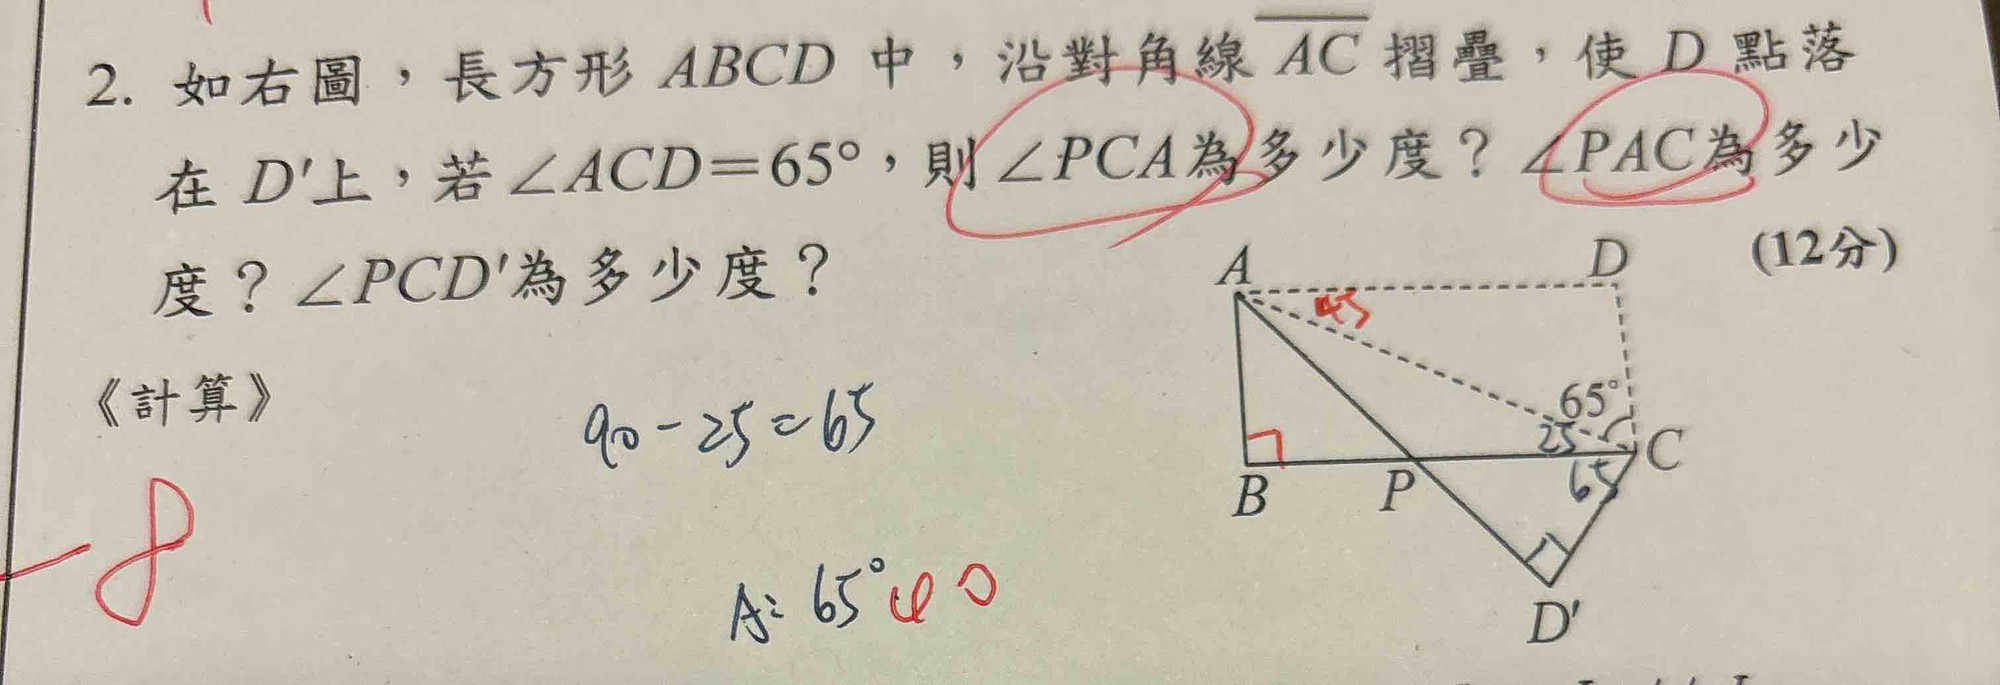 2. 如右圖，長方形 ABCD 中，沿對角線 AC 摺疊，使 D 點落
在 D′上，若∠ACD＝65°，則∠PCA為多少度？∠PAC為多少
度？∠PCD′為多少度？
(12分)
《計算》
90-25=65
A: 65°
-8
A
D
45
65°
25
C
65
B
P
D′